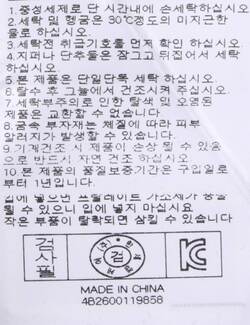 1.중성세제로 단 시간내에 손세탁하십시오.
2.세탁 및 헹굼은 30℃정도의 미지근한
물로 하십시오.
3.세탁전 취급기호를 먼저 확인 하십시오.
4.지퍼나 단추들은 잠그고 뒤집어서 세탁
하십시오.
5.본 제품은 단일단독 세탁 하십시오.
6.탈수 후 그늘에서 건조시켜 주십시오.
7.세탁부주의로 인한 탈색 및 오염된
제품은 교환할 수 없습니다.
8.금속 부자재는 체질에 따라 피부
알러지가 발생할 수 있습니다.
9.기계건조 시 제품이 손상 될 수 있음
으로 반드시 자연 건조 하십시오.
10.본 제품의 품질보증기간은 구입일로
부터 1년입니다.
입에 넣으면 프탈레이트 가소제가 용출
될 수 있으니 입에 넣지 마십시요.
작은 부품이 탈락되면 삼킬 수 있습니다
검사필
검
KC
MADE IN CHINA
4B2600119858